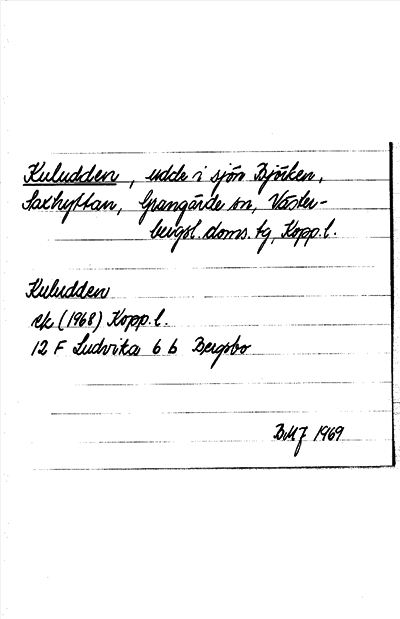 Kuludden, udde i sjön Björken,
Saxhyttan, Grangärde sn, Väster-
bergsl. doms. tg, Kopp. l.
Kuludden
ek (1968) Kopp. l.
12 F Ludvika 6 b Bergsbo
BMJ 1969